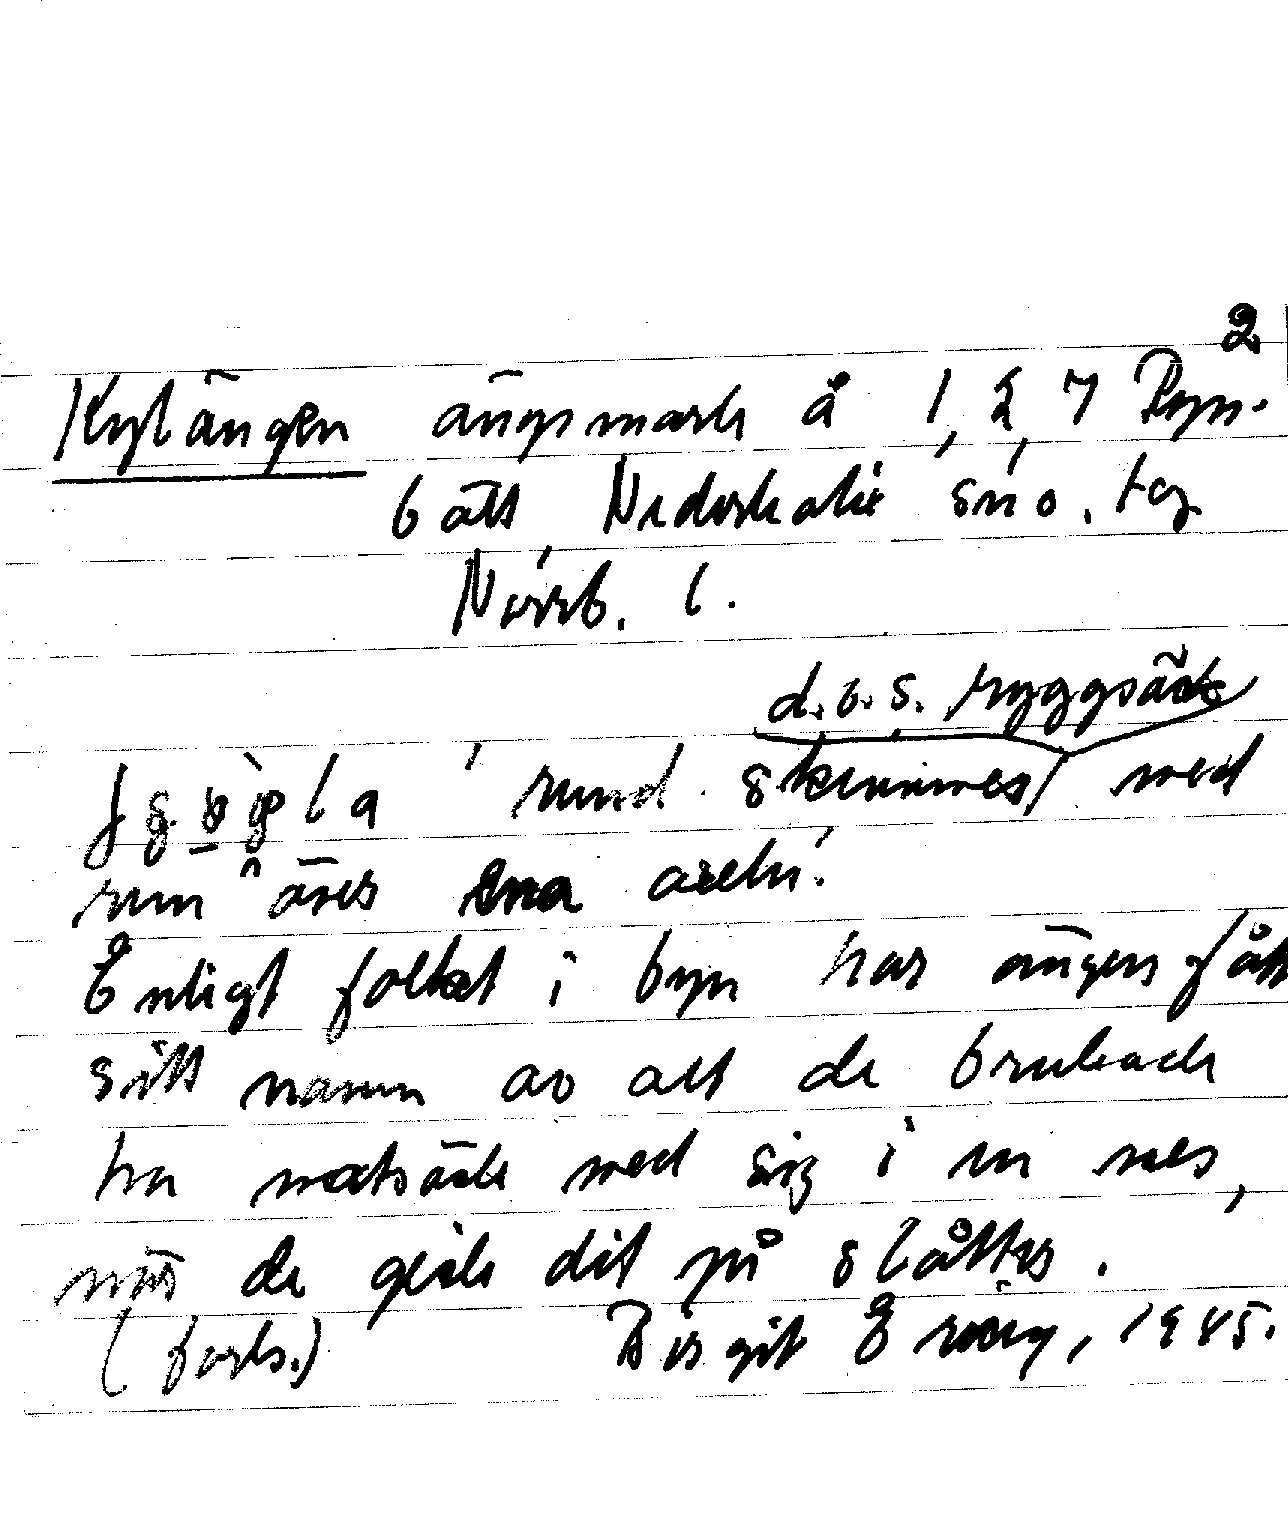 2.
Kylängen ängsmark å 1, 2, 7 Byn.
bått Nederkalix sn o. tg
Norrb. l.
d.v.s. ryggsäck
rund skinnmes med
rem över ena axeln'.
Enligt folket i byn har ängen fått
sitt namn av att de brukade
ha matsäck med sig i en mes,
när de gick dit på slåtter.
(forts.) Birgit Ering, 1945.